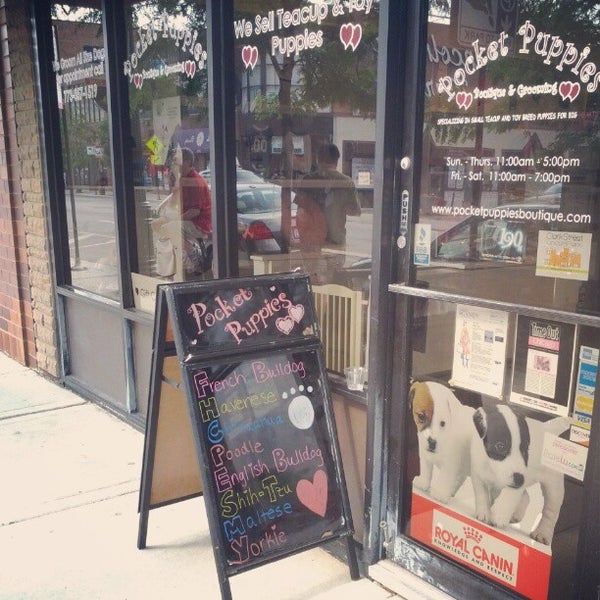 We Groom All Size Dogs
Pocket Puppies
Boutique & Grooming
We Sell Teacup & Toy
Puppies
Pocket Puppies
Boutique & Grooming
SPECIALIZING IN SMALL TEACUP AND TOY BREED PUPPIES FOR BIG
Sun. - Thurs. 11:00am - 5:00pm
Fri. - Sat. 11:00am - 7:00pm
www.pocketpuppiesboutique.com
PUSH
Pocket
Puppies
French Bulldog
Havenese
Chihuahua
Poodle
English Bulldog
Shih-Tzu
Maltese
Yorkie
Time Out
VISA
DISCOVER
ROYAL CANIN
KNOWLEDGE AND RESPECT